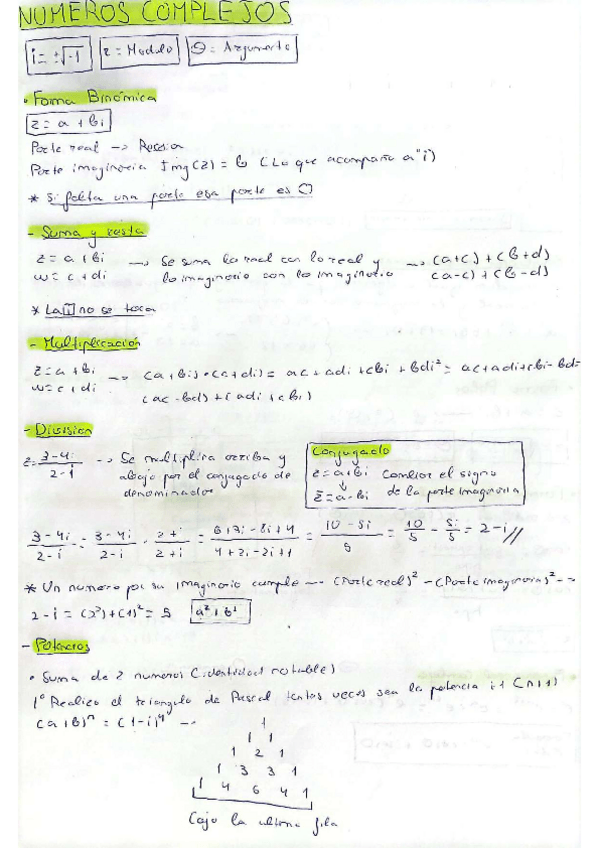 NUMEROS COMPLEJOS
i = ±√-1   z = Modulo   Θ = Argumento
• Forma Binómica
z = a + bi
Parte real →
Parte imaginaria Img(z) = b (Lo que acompaña a "i")
* Si falta una parte esa parte es 0
- Suma y resta
z = a + bi → Se suma lo real con lo real y → (a+c) + (b+d)
w = c + di lo imaginario con lo imaginario (a-c) + (b-d)
* La i no se toca
- Multiplicación
z = a + bi → (a+bi)·(c+di) = ac + adi + cbi + bdi² = ac+adi+cbi-bd=
w = c + di (ac-bd) + (adi + cbi)
- Division
z = 3-4i / 2-i → Se multiplica arriba y
abajo por el conjugado de
denominador
Conjugado
z = a+bi Cambiar el signo
↓
z̄ = a-bi de la parte imaginaria
3-4i / 2-i = 3-4i / 2-i · 2+i / 2+i = 6+3i-8i+4 / 4+2i-2i+1 = 10-5i / 5 = 10/5 - 5i/5 = 2-i //
* Un numero por su imaginario cumple → (Parte real)² - (Parte imaginaria)² →
2-i = (2²)+(1)² = 5   a²+b²
- Potencias
• Suma de 2 numeros (identidad notable)
1º Realizo el triangulo de Pascal tantas veces sea la potencia +1 (n+1)
(a+b)ⁿ = (1-i)⁴ →
1
1 1
1 2 1
1 3 3 1
1 4 6 4 1
Cojo la ultima fila